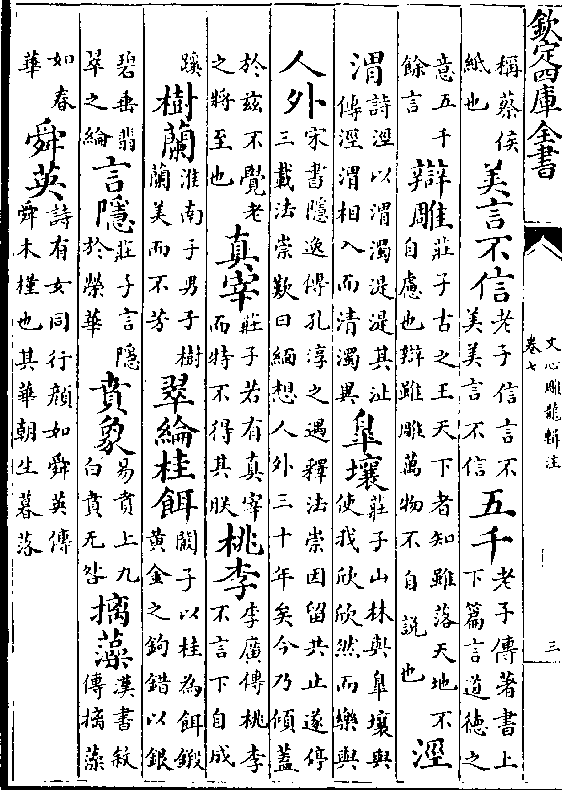 欽定四庫全書
文心雕龍輯注
卷七
三
稱蔡侯紙也 美言不信 老子信言不美美言不信 五千 老子傳著書上下篇言道德之
意五千餘言 辯雕 莊子古之王天下者知雖落天地不自慮也辯雖雕萬物不自說也 涇
渭 詩涇以渭濁湜湜其沚傳涇渭相入而清濁異 皐壤 莊子山林與皐壤與使我欣欣然而樂與
人外 宋書隱逸傳孔淳之遇釋法崇因留共止遂停三載法崇歎曰緬想人外三十年矣今乃傾蓋
於兹不覺老之將至也 真宰 莊子若有真宰而特不得其朕 桃李 李廣傳桃李不言下自成
蹊 樹蘭 淮南子男子樹蘭美而不芳 翠綸桂餌 闕子以桂為餌鍛黃金之鉤錯以銀
碧垂翡翠之綸 言隱 莊子言隱於榮華 賁象 易賁上九白賁无咎 摛藻 漢書敘傳摛藻
如春華 舜英 詩有女同行顔如舜英傳舜木槿也其華朝生暮落